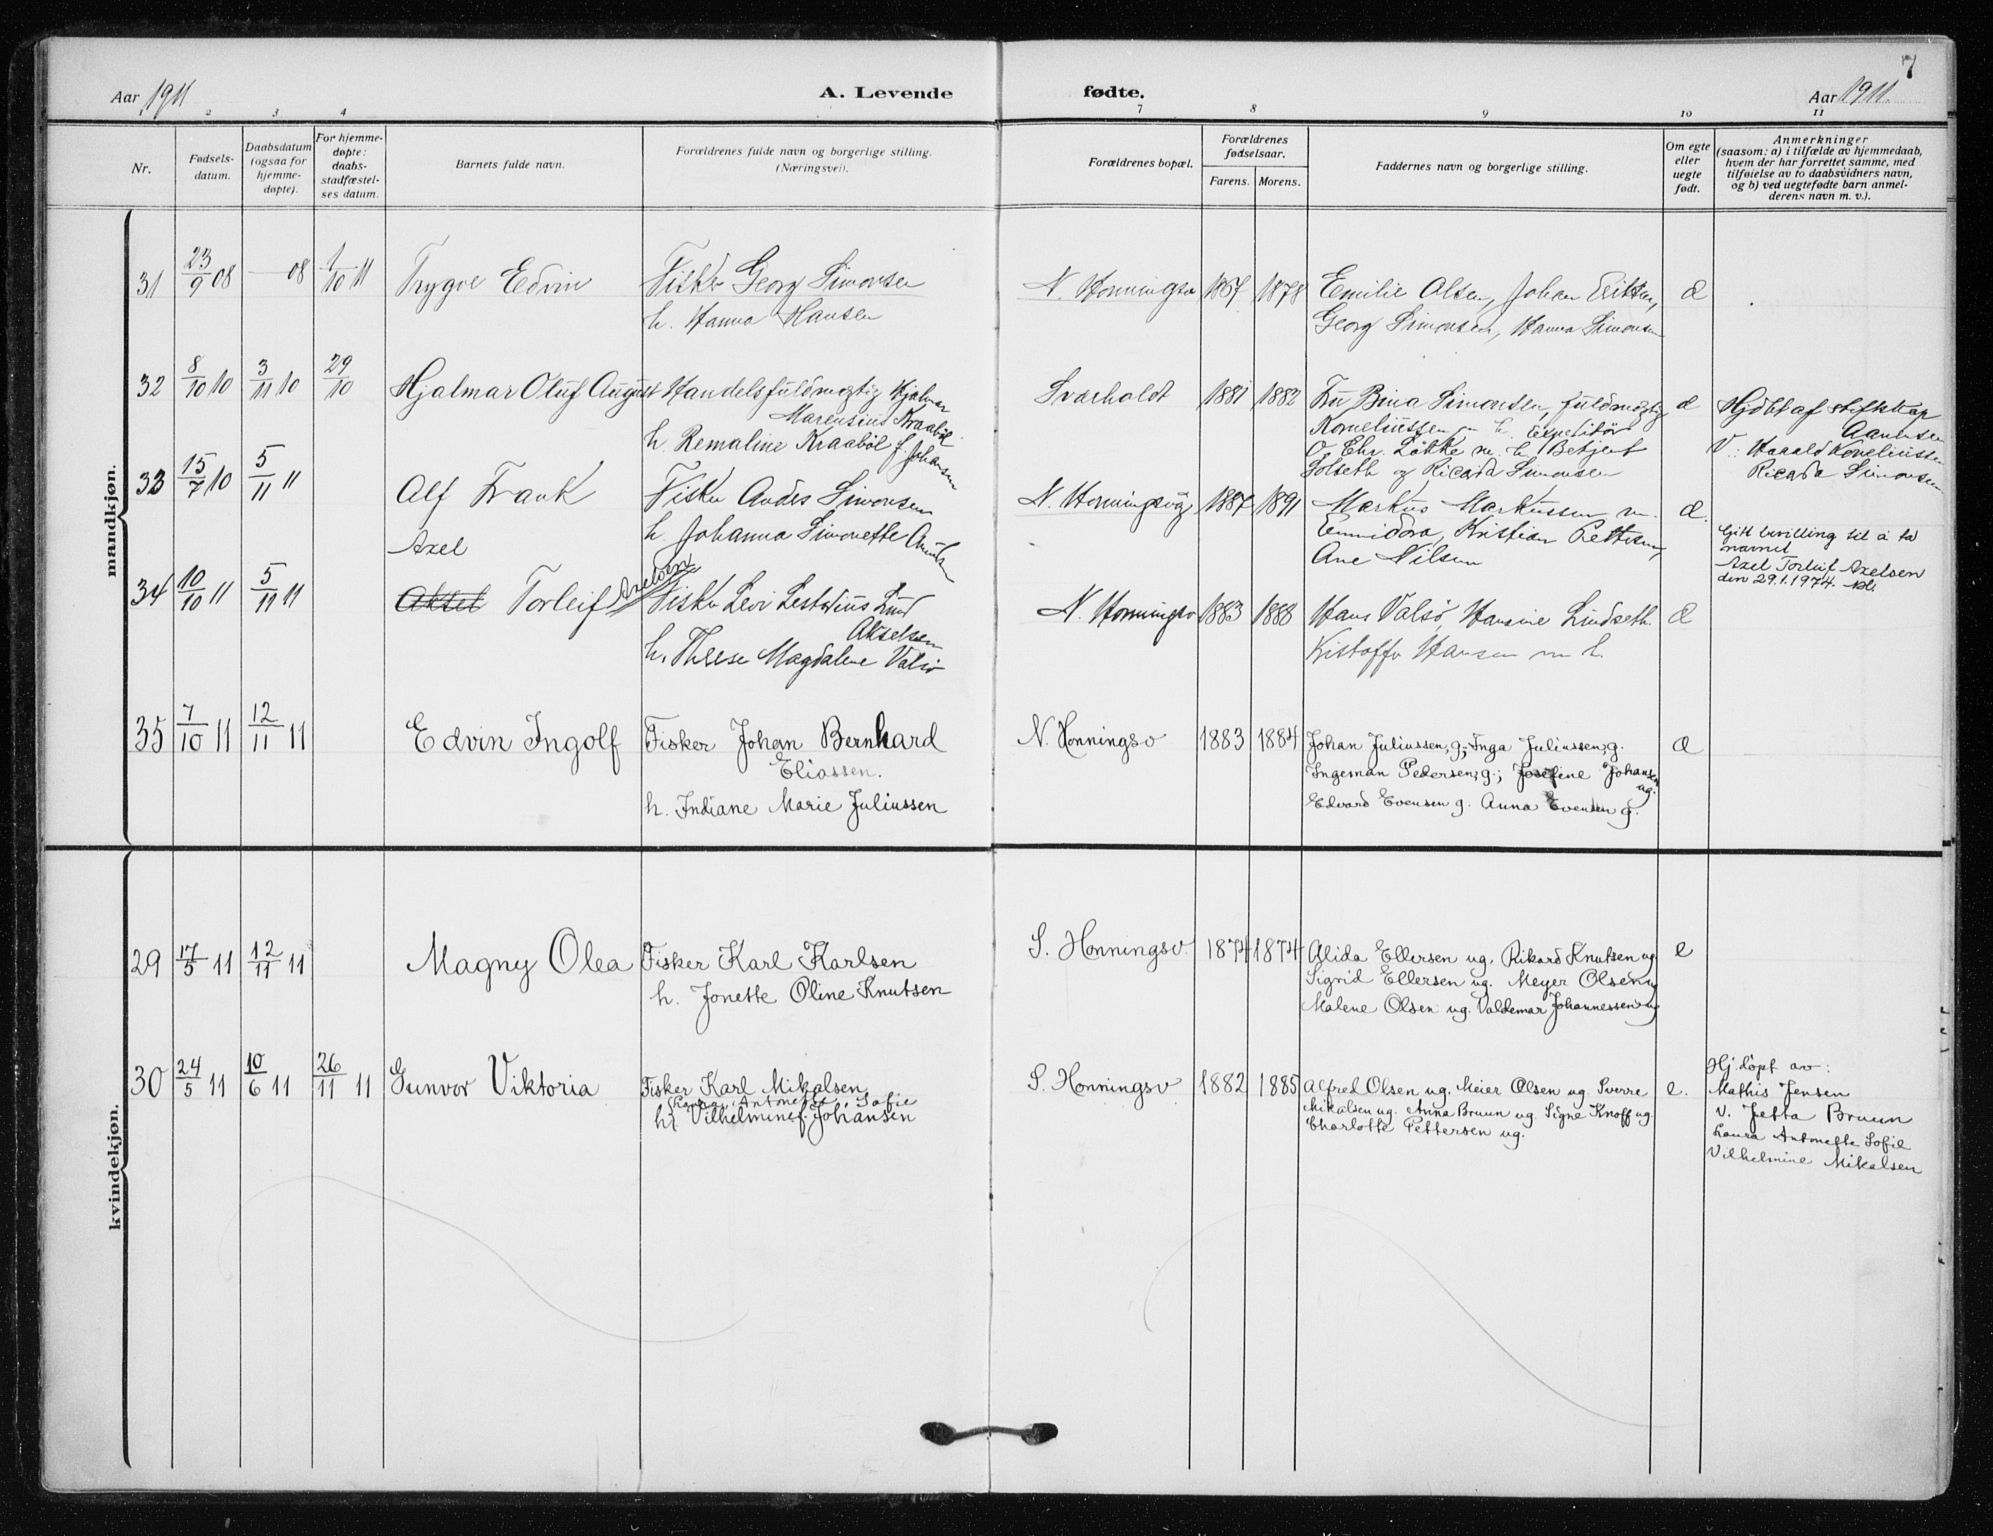 7
Aar 1911
A. Levende
fødte.
Aar 1911
1 2 3 4 7 8 9 10 11
Nr.
Fødsels-
datum.
Daabsdatum
(ogsaa for
hjemme-
døpte).
For hjemme-
døpte:
daabs-
stadfæstel-
ses datum.
Barnets fulde navn.
Forældrenes fulde navn og borgerlige stilling.
(Næringsvei).
Forældrenes bopæl.
Forældrenes
fødselsaar.
Farens. Morens.
Faddernes navn og borgerlige stilling.
Om egte
eller
uegte
født.
Anmerkninger
(saasom: a) i tilfælde av hjemmedaab,
hvem der har forrettet samme, med
tilføielse av to daabsvidners navn,
og b) ved uegtefødte barn anmel-
derens navn m. v.).
mandkjøn.
31 23/9 08 — 08 1/10 11 Trygve Edvin Fisker Georg Simonsen N. Honningsv 1878 Emilie Olsen, Johan
h. Hanna Hansen Georg Simonsen, Hanna Simonsen
32 8/10 10 3/11 10 29/10 Hjalmar Oluf August Handelsfuldmegtig Hjalmar Sværholdt 1881 1882 Fru Bina Simonsen, fuldmegtig
Marensius Kraabøl Korneliussen m. h. Expeditør
h. Remaline Kraabøl f. Johansen O. Chr. Løkke m. h. Betjent
Solseth og Ricarda Simonsen
Hjdbt af
V: Harald Korneliussen
Ricarda Simonsen
33 15/7 10 5/11 11 Alf Frank Fisker Anders Simonsen N. Honningsvåg 1887 1891 Markus Markussen m.
h. Johanna Simonette Kristian Pettersen,
Ane Nilsen
Axel
34 10/10 11 5/11 11 Aksel Torleif Axelsen Fisker Levi Lestadius Lund N. Honningsv 1883 1888 Hans Valsø, Hansine Lindseth
Akselsen Kristoffer Hansen m h.
h. Therese Magdalene Valsø
Gitt bevilling til å ta
navnet
Axel Torleif Axelsen
den 29.1.1974.
35 7/10 11 12/11 11 Edvin Ingolf Fisker Johan Bernhard N. Honningsv 1883 1884 Johan Juliussen, g; Inga Juliussen, g.
Eliassen. Ingeman Pedersen, g.; Josefine Johansen ug.
h. Indiane Marie Juliussen Edvard Evensen g. Anna Evensen g.
kvindekjøn.
29 17/5 11 12/11 11 Magny Olea Fisker Karl Karlsen S. Honningsv. 1874 1874 Alida Ellersen ug. Rikard Knutsen ug e
h. Jonette Oline Knutsen Sigrid Ellersen ug. Meyer Olsen ug
Malene Olsen ug. Valdemar Johannessen ug
30 24/5 11 10/6 11 26/11 11 Gunvor Viktoria Fisker Karl Mikalsen S. Honningsv 1882 1885 Alfred Olsen ug. Meier Olsen ug Sverre e.
Laura Antonette Sofie Mikalsen ug. Anna Bruun ug. Signe Knoff ug.
h. Vilhelmine f. Johansen Charlotte Pettersen ug.
Hj. døpt av:
Mathis Jensen
v. Jetta Bruun
Laura Antonette Sofie
Vilhelmine Mikalsen